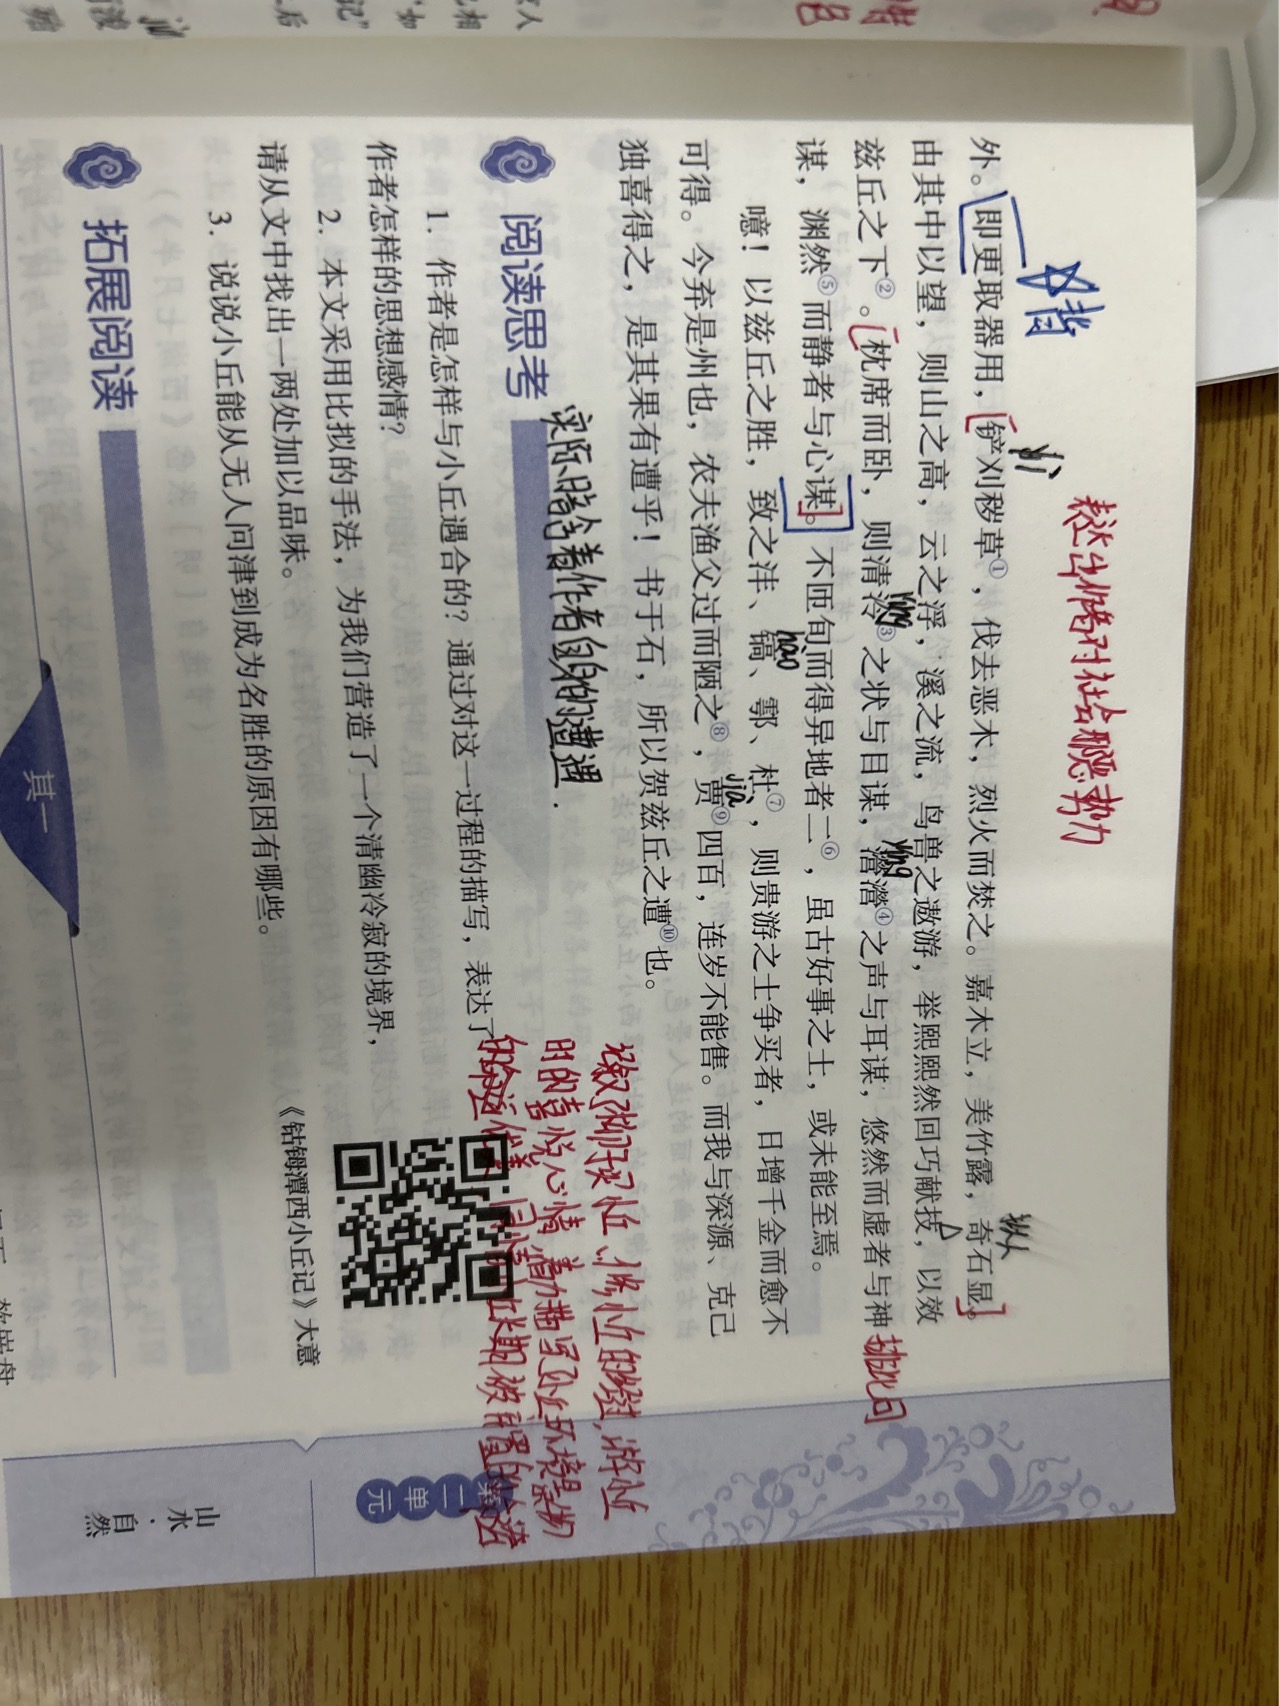 背
yì
表达出作者对社会恶势力
外。即更取器用，铲刈秽草①，伐去恶木，烈火而焚之。嘉木立，美竹露，奇石显。
由其中以望，则山之高，云之浮，溪之流，鸟兽之遨游，举熙熙然回巧献技，以效
兹丘之下②。枕席而卧，则清泠③之状与目谋，瀯瀯④之声与耳谋，悠然而虚者与神
排比句
yíng
谋，渊然⑤而静者与心谋。不匝旬而得异地者二⑥，虽古好事之士，或未能至焉。
hào
噫！以兹丘之胜，致之沣、镐、鄠、杜⑦，则贵游之士争买者，日增千金而愈不
jià
可得。今弃是州也，农夫渔父过而陋之⑧，贾⑨四百，连岁不能售。而我与深源、克己
独喜得之，是其果有遭乎！书于石，所以贺兹丘之遭⑩也。
实际暗含着作者自身的遭遇．
阅读思考
1. 作者是怎样与小丘遇合的？通过对这一过程的描写，表达了
作者怎样的思想感情？
2. 本文采用比拟的手法，为我们营造了一个清幽冷寂的境界，
请从文中找出一两处加以品味。
3. 说说小丘能从无人问津到成为名胜的原因有哪些。
时的喜悦心情
《钴鉧潭西小丘记》大意
拓展阅读
其一
二单元
山水·自然